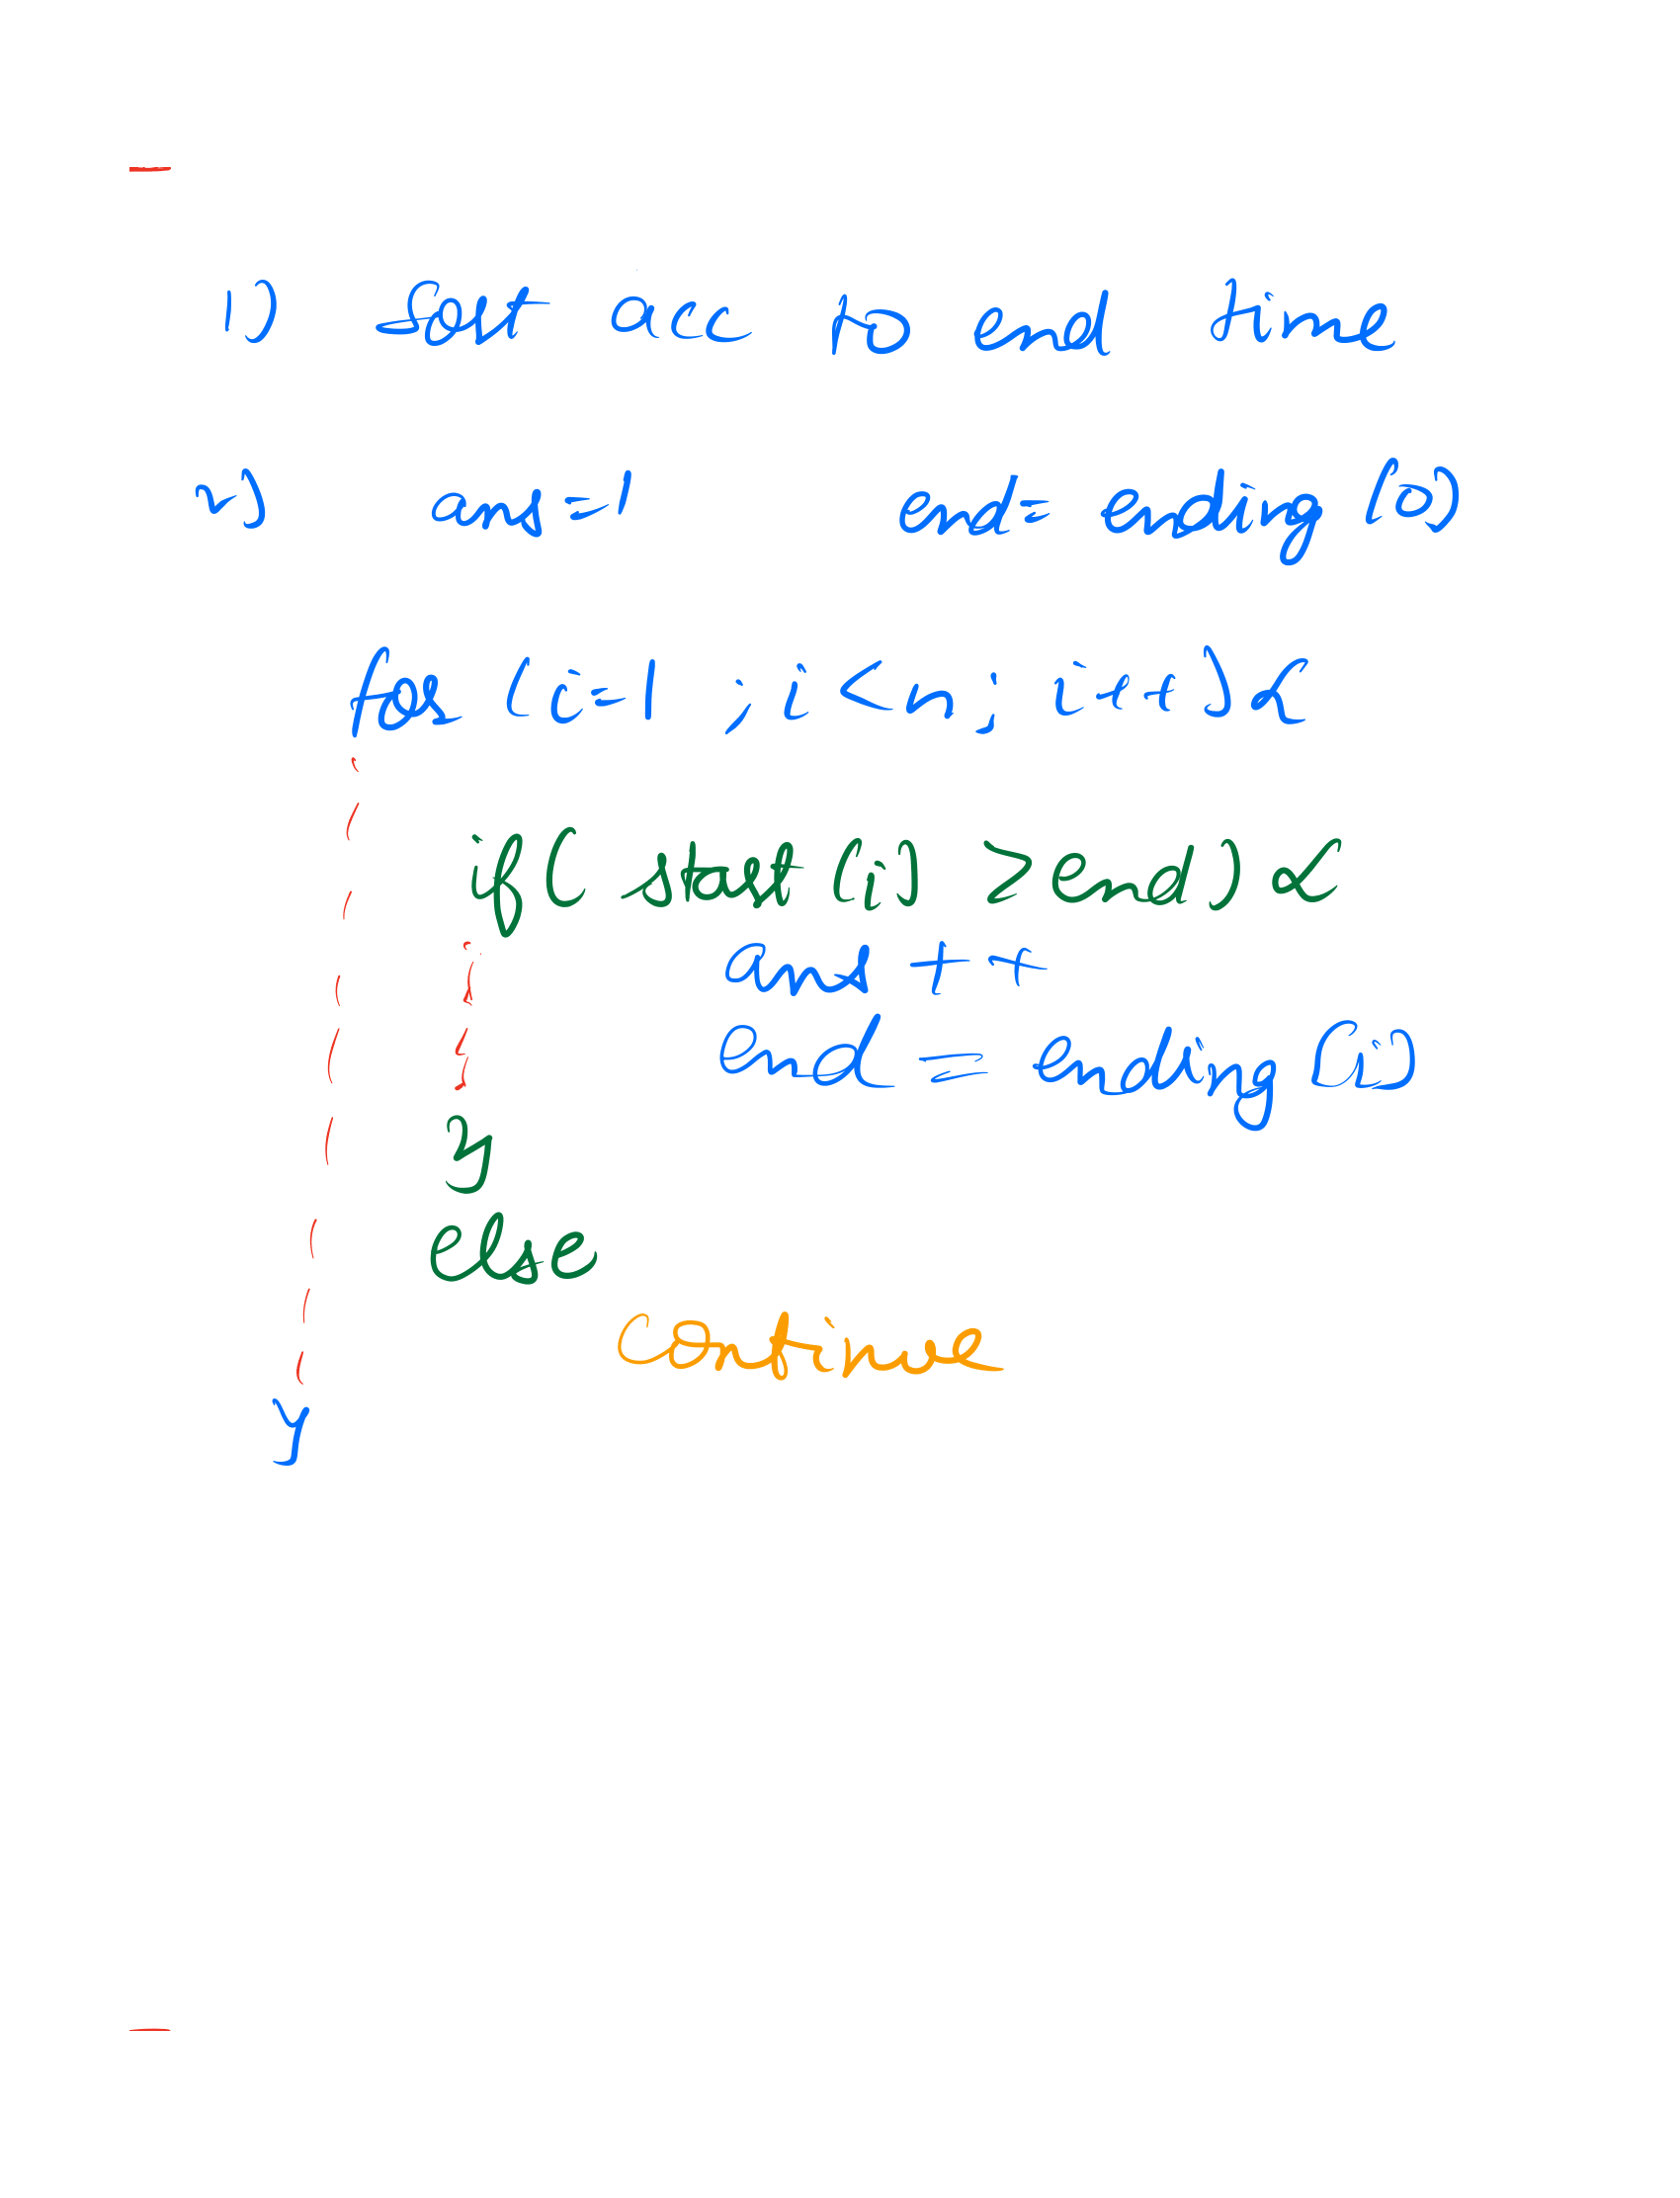 1) Sort acc to end time
2) ans=1 end= ending[0]
for (i=1 ; i<n ; i++) {
if( start[i] > end) {
ans ++
end = ending[i]
}
else
continue
}